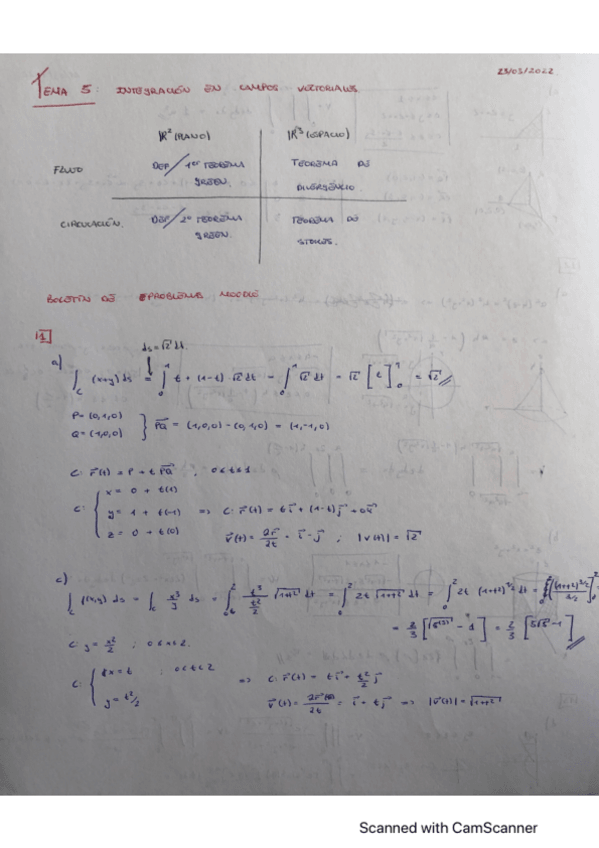 23/03/2022
TEMA 5: INTEGRACIÓN EN CAMPOS VECTORIALES.
R² (PLANO) R³ (ESPACIO)
FLUJO DEF/1er TEOREMA GREEN. TEOREMA DE DIVERGENCIA.
CIRCULACIÓN. DEF/2º TEOREMA GREEN. TEOREMA DE STOKES.
BOLETÍN DE PROBLEMAS MOODLE
1
ds = √2 dt.
a) ∫_C (x+y) ds = ∫_0^1 t + (1-t) · √2 dt = ∫_0^1 √2 dt = √2 [t]_0^1 = √2
P = (0,1,0)
Q = (1,0,0) } PQ = (1,0,0) - (0,1,0) = (1,-1,0)
C: r(t) = P + t PQ ; 0<t<1
C: { x = 0 + t(1)
y = 1 + t(-1) => C: r(t) = t i + (1-t) j + 0 k
z = 0 + t(0) v(t) = ∂r/∂t = i - j ; |v(t)| = √2
c) ∫_C f(x,y) ds = ∫_C x³/y ds = ∫_0^2 t³/(t²/2) √(1+t²) dt = ∫_0^2 2t √(1+t²) dt = ∫_0^2 2t (1+t²)^(1/2) dt =
= 2/3 [√(5^3) - 1] = 2/3 [5√5 - 1]
C: y = x²/2 ; 0<x<2.
C: { x = t ; 0<t<2 => C: r(t) = t i + t²/2 j
y = t²/2 v(t) = ∂r(t)/∂t = i + t j => |v(t)| = √(1+t²)
Scanned with CamScanner